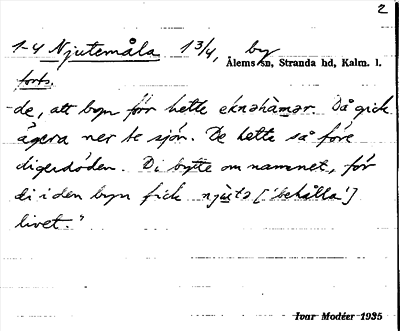 2
1-4 Njutemåla 13/4, by
Ålems sn, Stranda hd, Kalm. l.
forts.
de, att byn förr hette eknəhàmər. Då gick
ägera ner te sjön. De hette så före
digerdöden. Di bytte om namnet, för
di i den byn fick njùtə ['behålla']
livet."
Ivar Modéer 1935